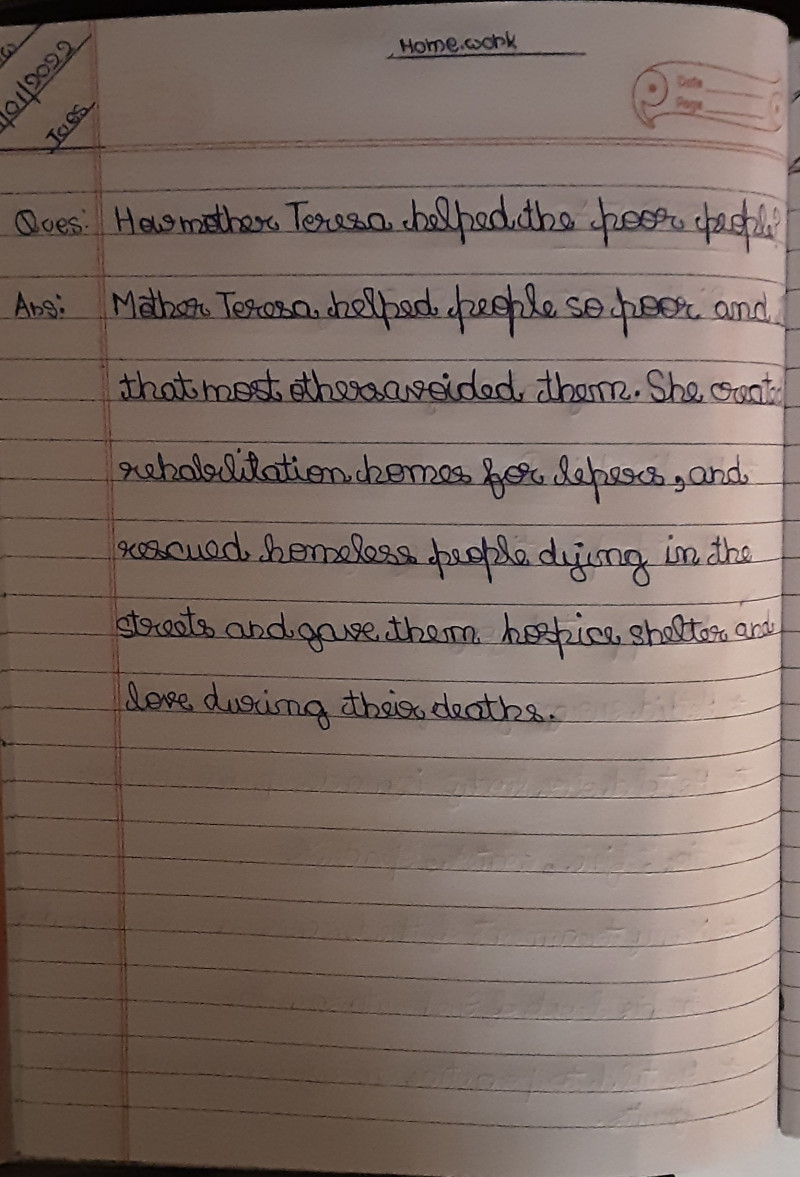 Home work
Date
Page
Tues
Ques: How mother Teresa helped the poor people?
Ans: Mother Teresa helped people so poor and
that most others avoided them. She create
rehabilitation homes for lepers, and
rescued homeless people dying in the
streets and gave them hospice shelter and
love during their deaths.